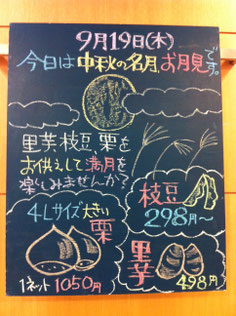 9月19日(木)
今日は中秋の名月、お月見です。
里芋、枝豆、栗を
お供えして満月を
楽しみませんか?
枝豆
298円~
4Lサイズ大きい
栗
1ネット1050円
里芋
498円